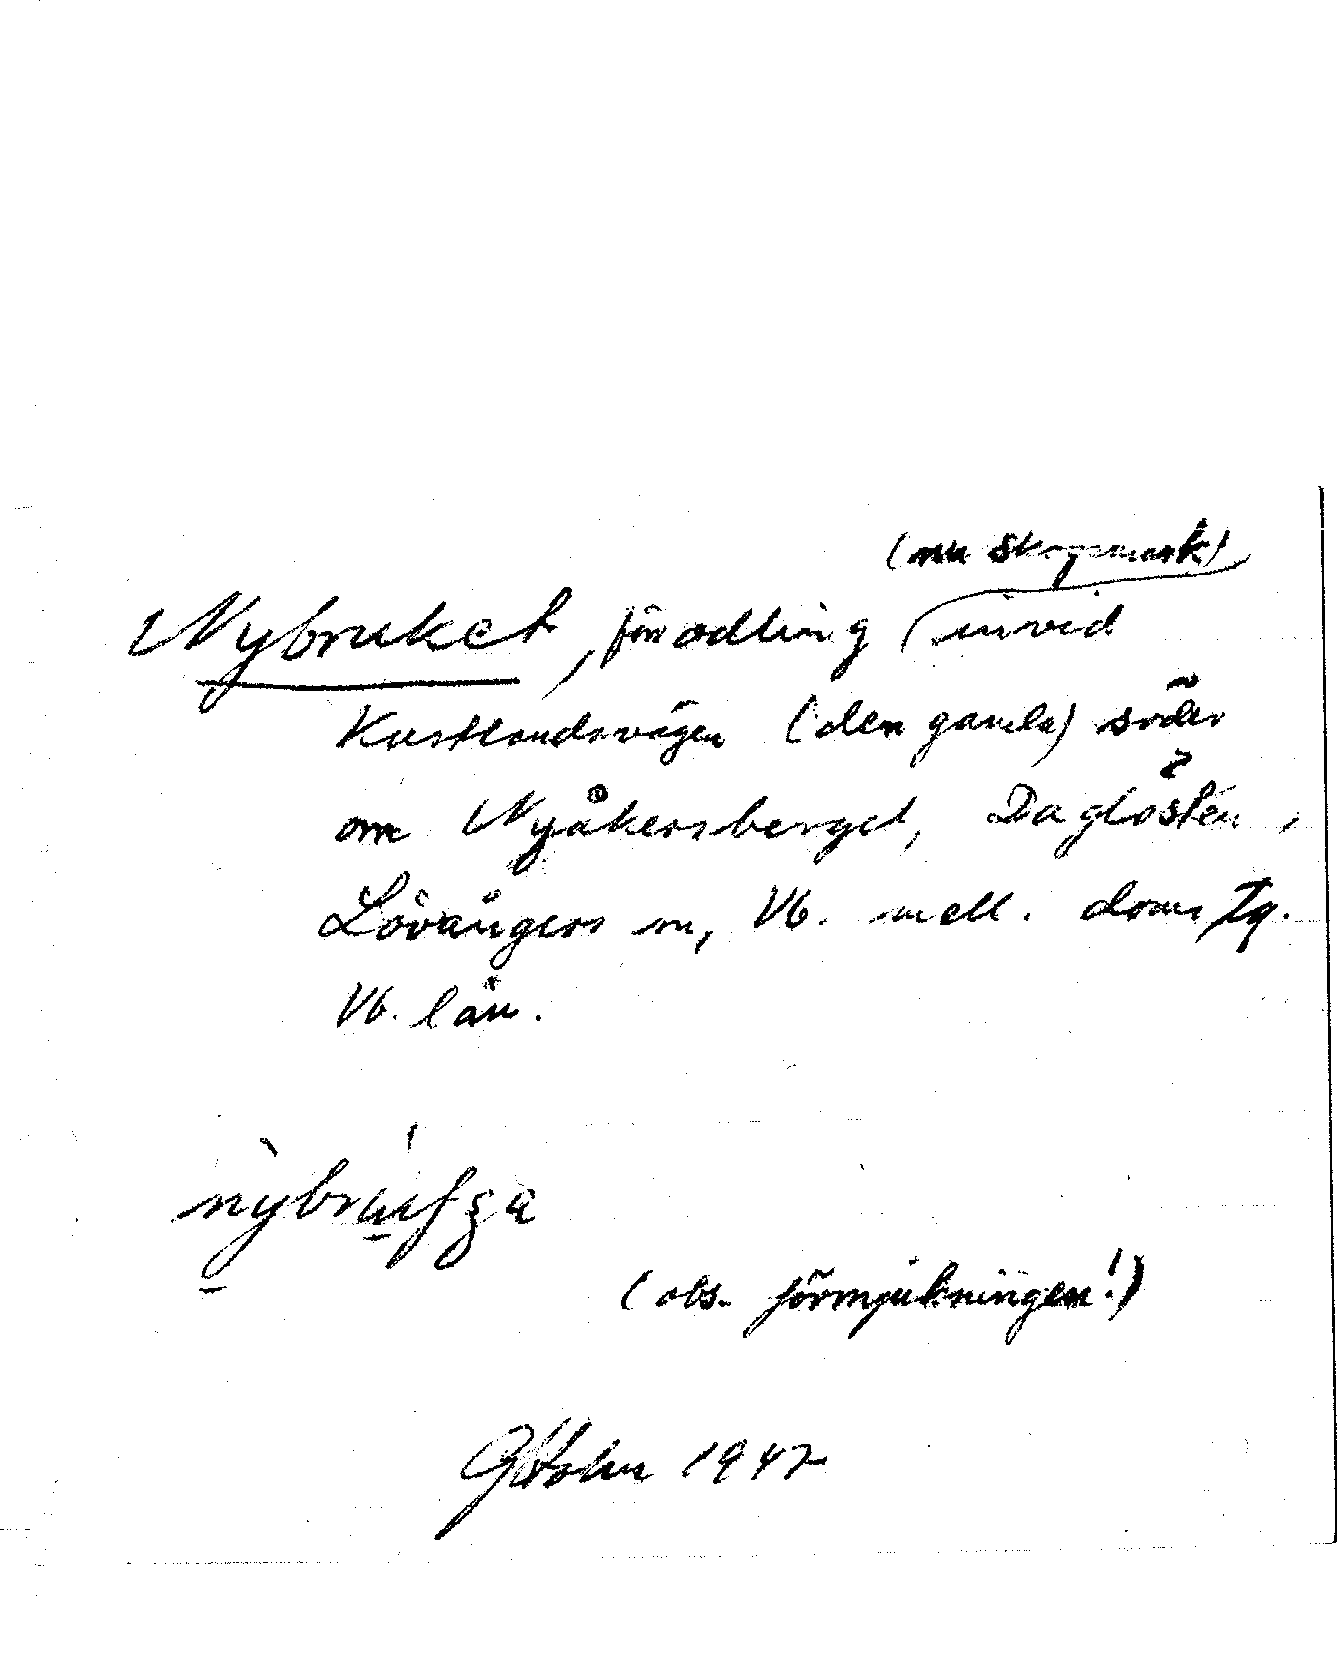 (nu skogsmark)
Nybruket, förr odling invid
Kustlandsvägen (den gamla) söder
om Nyåkersberget, Daglösten,
Lövångers sn, Vb. mell. doms, Tg.
Vb. län.
(obs. förmjukningen!)
1947